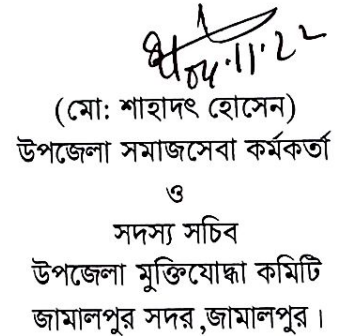 ০৮.১১.২২
(মো: শাহাদৎ হোসেন)
উপজেলা সমাজসেবা কর্মকর্তা
ও
সদস্য সচিব
উপজেলা মুক্তিযোদ্ধা কমিটি
জামালপুর সদর ,জামালপুর।